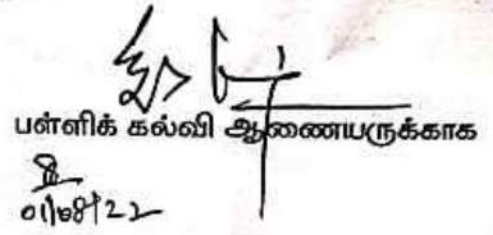 பள்ளிக் கல்வி ஆணையருக்காக
01/08/22